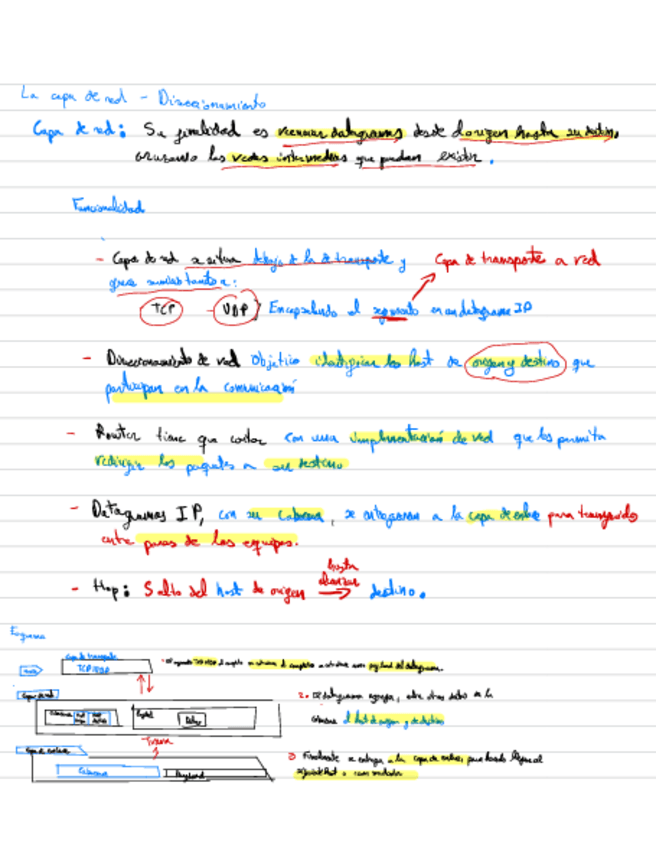 La capa de red - Direccionamiento
Capa de red: Su finalidad es reenviar datagramas desde el origen hasta su destino,
cruzando las redes intermedias que puedan existir.
Funcionalidad
- Capa de red se sitúa debajo de la de transporte y
Capa de transporte a red
TCP - UDP } Encapsulando el segmento en un datagrama IP
- Direccionamiento de red Objetivo identificar los host de origen y destino que
participan en la comunicación
- Router tiene que contar con una implementación de red que les permita
redirigir los paquetes a su destino
- Datagramas IP, con su cabecera, se entregaran a la capa de enlace para transferirlos
entre pares de los equipos.
- Hop: Salto del host de origen hasta alcanzar → destino.
Esquema
Capa de transporte
TCP/UDP
Capa de red
2. El datagrama agrega, entre otros datos en la
cabecera el host de origen y destino
Trama
Capa de enlace
3 Finalmente se entrega a la capa de enlace para hacerlo llegar al
siguiente host o
Cabecera
Payload